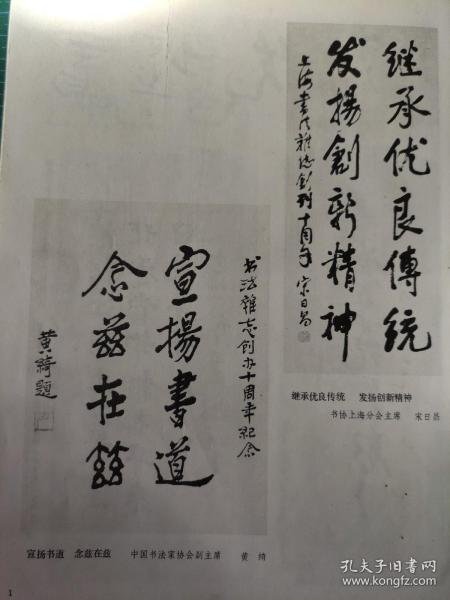 继承优良傳统
发揚創新精神
上海书法雜志創刊十周年 宋日昌
继承优良传统 发扬创新精神
书协上海分会主席 宋日昌
书法雜志创办十周年纪念
宣揚書道
念兹在兹
黄绮題
宣扬书道 念兹在兹 中国书法家协会副主席 黄绮
1
孔夫子旧书网